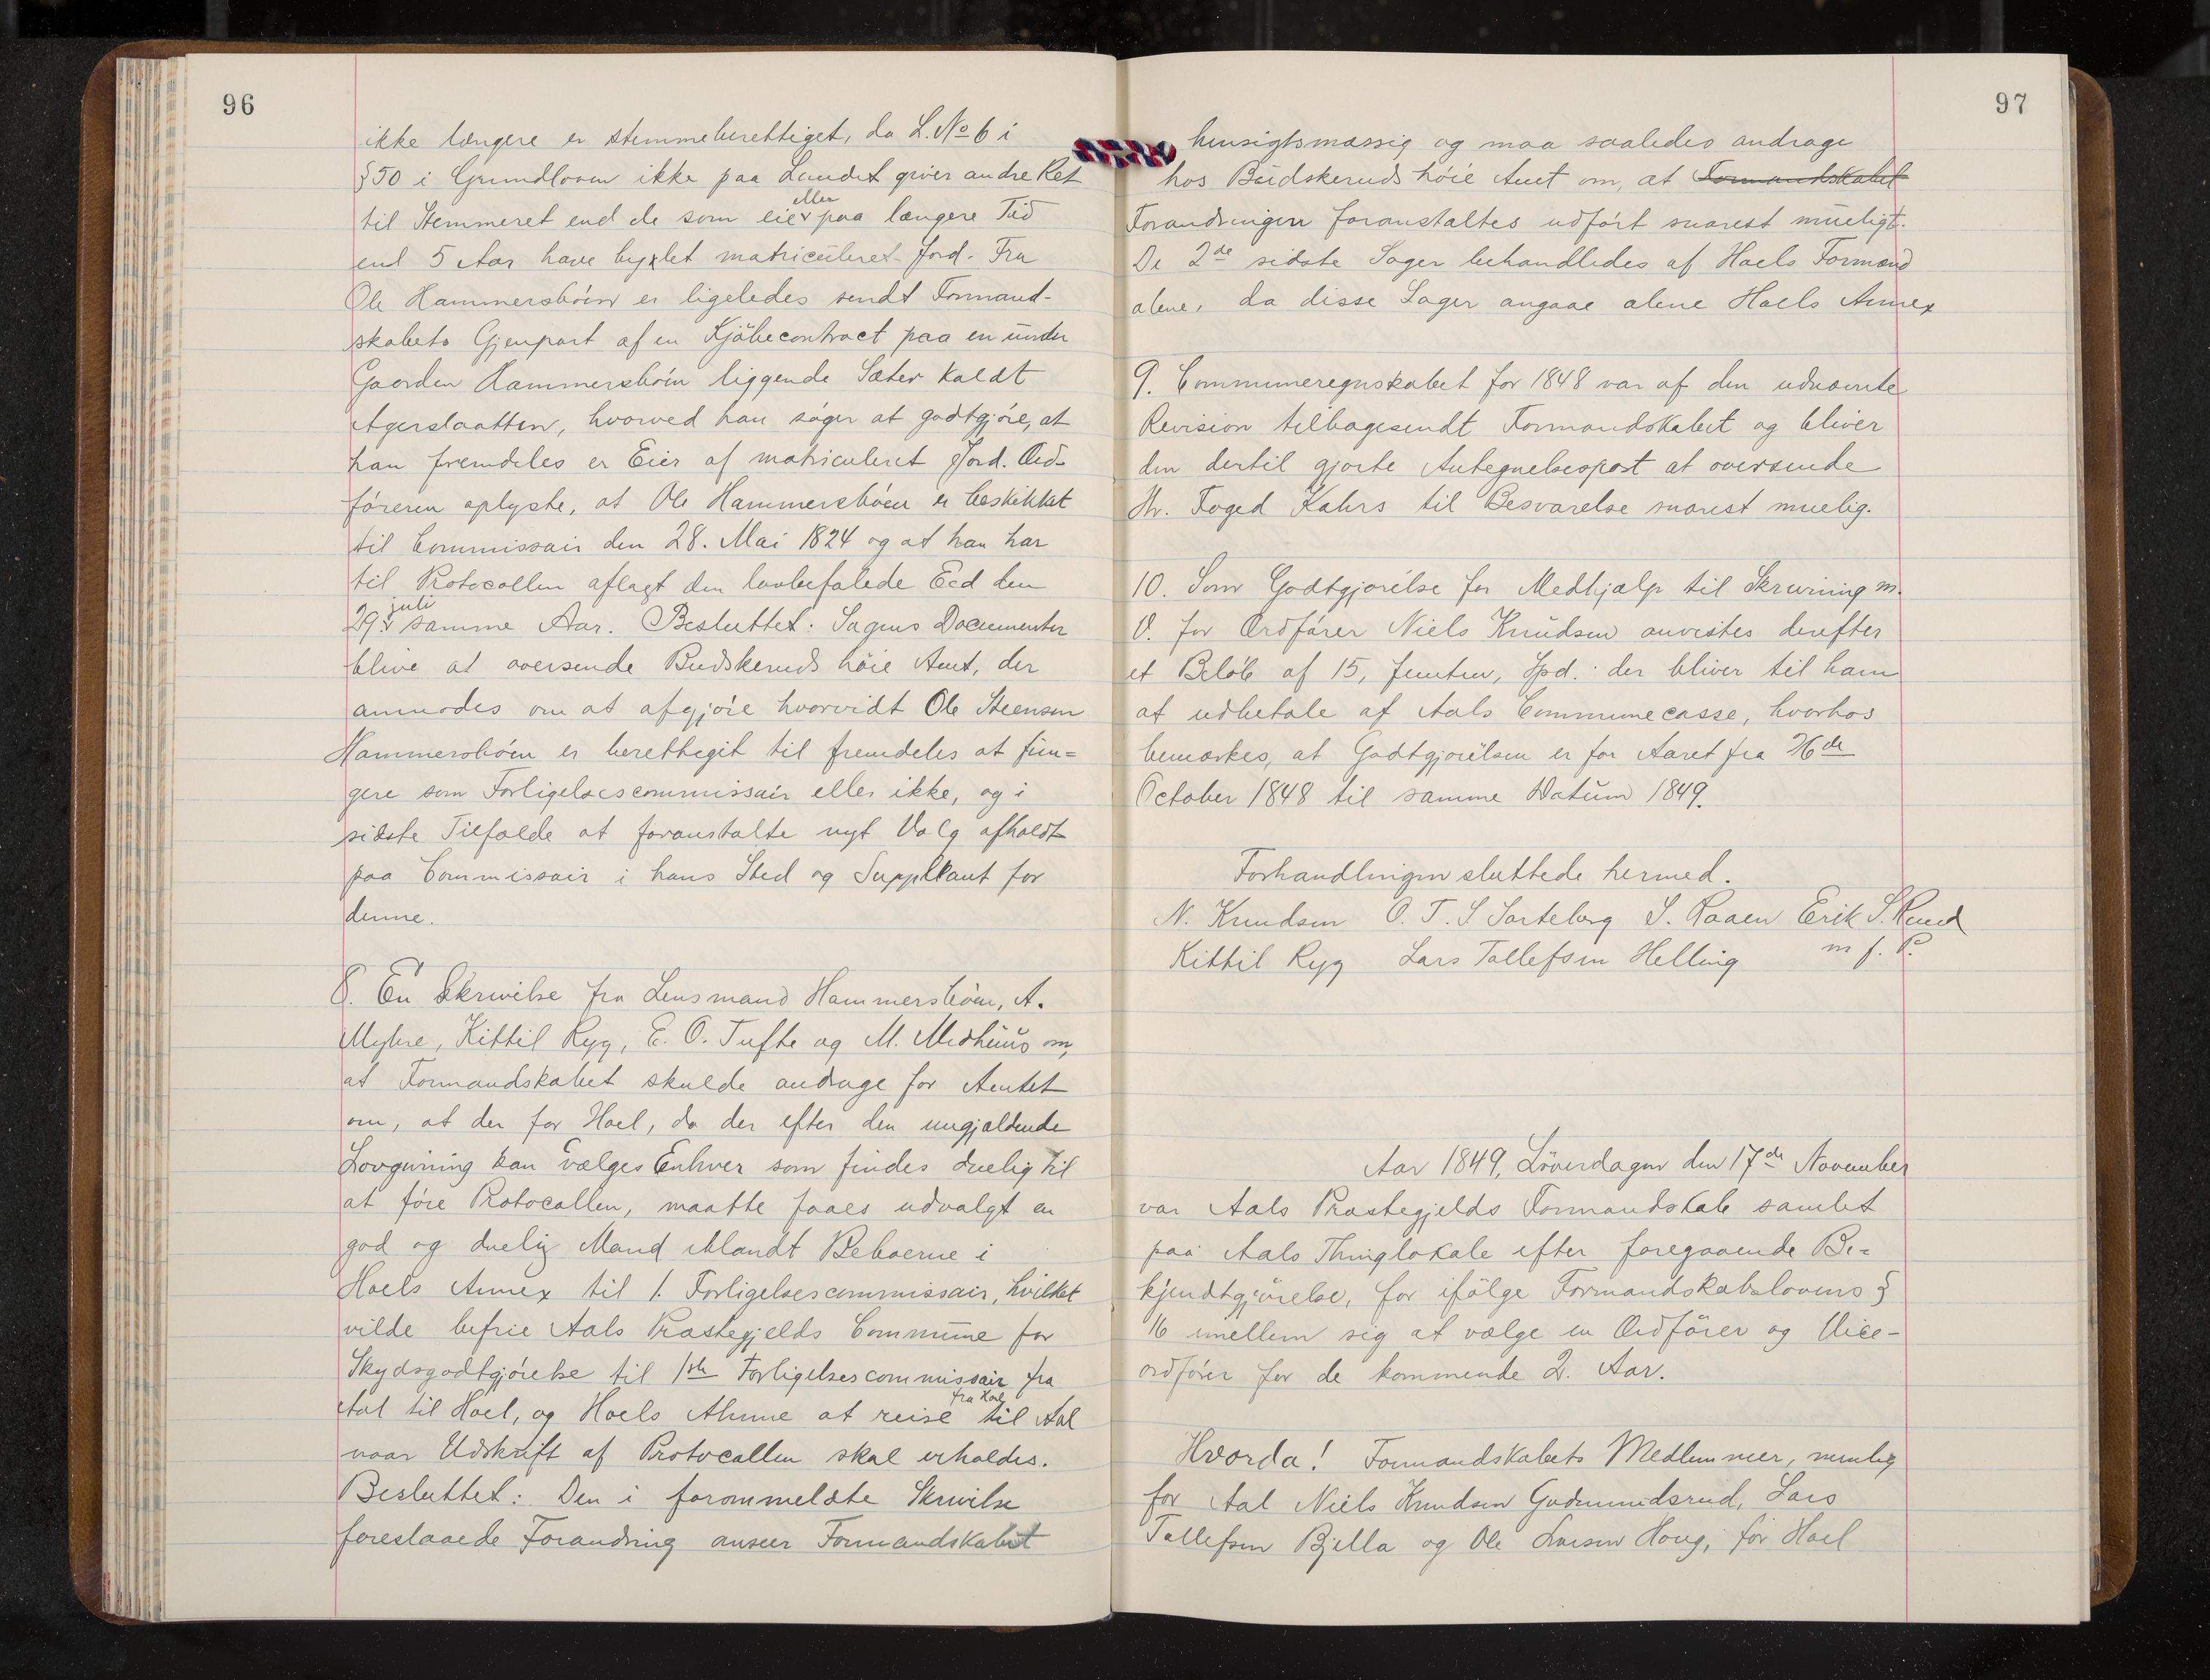 96
ikke længere er stemmeberettiget, da L. No 6 i
§50 i Grundloven ikke paa Landet giver andre Ret
til Stemmeret end de som eier eller paa længere Tid
end 5 Aar have bygslet matriculeret Jord. Fra
Ole Hammersbøen er ligeledes sendt Formand-
skabets Gjenpart af en Kjøbecontract paa en under
Gaarden Hammersbøen liggende Sæter kaldt
Agerslaatten, hvorved han søger at godtgjøre, at
han fremdeles er Eier af matriculeret Jord. Ord-
føreren oplyste, at Ole Hammersbøen er beskikket
til Commissair den 28. Mai 1824 og at han har
til Protocollen aflagt den lovbefalede Eed den
29. juli samme Aar. Besluttet: Sagens Documenter
blive at oversende Budskeruds høie Amt, der
anmodes om at afgjøre hvorvidt Ole Steensen
Hammersbøen er berettegit til fremdeles at fun=
gere som Forligelsescommissair eller ikke, og i
sidste Tilfælde at foranstalte nyt Valg afholdt
paa Commissair i hans Sted og Suppleant for
denne.
8. En Skrivelse fra Lensmand Hammersbøen, A.
Myhre, Kittil Ryg, E. O. Tufte og M. Medhuus om,
at Formandskabet skulde andrage for Amtet
om, at der for Hoel, da der efter den nugjældende
Lovgivning kan vælges Enhver som findes duelig til
at føre Protocollen, maatte faaes udvalgt en
god og duelig Mand iblandt Beboerne i
Hoels Annex til 1. Forligelsescommissair, hvilket
vilde befrie Aals Præstegjelds Commune for
Skydsgodtgjørelse til 1ste Forligelsescommissair fra
Aal til Hoel, og Hoels Almue at reise fra Hoel til Aal
naar Udskrift af Protocollen skal erholdes.
Besluttet: Den i forommeldte Skrivelse
foreslaaede Forandring anseer Formandskabet
97
hensigtsmæssig og maa saaledes andrage
hos Budskeruds høie Amt om, at Formandskabet
Forandringen foranstaltes udført snarest mueligt.
De 2de sidste Sager behandledes af Hoels Formænd
alene, da disse Sager angaae alene Hoels Annex
9. Communeregnskabet for 1848 var af den udnævnte
Revision tilbagesendt Formandskabet og bliver
den dertil gjorte Antegnelsespost at oversende
Hr. Foged Kahrs til Besvarelse snarest muelig.
10. Som Godtgjørelse for Medhjælp til Skrivning m.
V. for Ordfører Niels Knudsen anvistes derefter
et Beløb af 15, femten, Spd. der bliver til ham
at udbetale af Aals Communecasse, hvorhos
bemærkes, at Godtgjørelsen er for Aaret fra 26de
October 1848 til samme Datum 1849.
Forhandlingen sluttede hermed.
N. Knudsen O. T. S Sarteberg S. Raaen Erik S. Ruud
Kittil Ryg Lars Tollefsen Helling m f. P.
Aar 1849, Løverdagen den 17de November
var Aals Præstegjelds Formandskab samlet
paa Aals Thinglokale efter foregaaende Be=
kjendtgjørelse, for ifølge Formandskabslovens §
16 imellem sig at vælge en Ordfører og Vice-
ordfører for de kommende 2. Aar.
Hvorda! Formandskabets Medlemmer, nemlig
for Aal Niels Knudsen Gudmundsrud, Lars
Tollefsen Bjella og Ole Larsen Houg, for Hoel